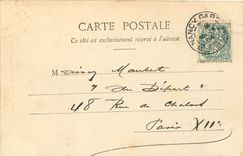 CARTE POSTALE
Ce côté est exclusivement réservé à l'adresse
NANCY GARE
Monsieur Maubert
" au Départ "
48 Rue de Chalons
Paris XIIe